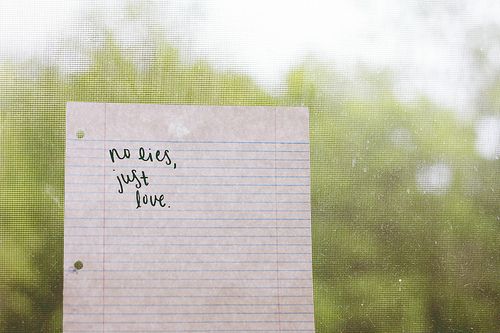 no lies,
just
love.